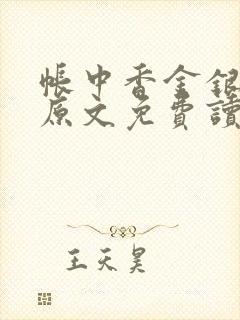 帳中香金銀
原文免費讀
王天昊